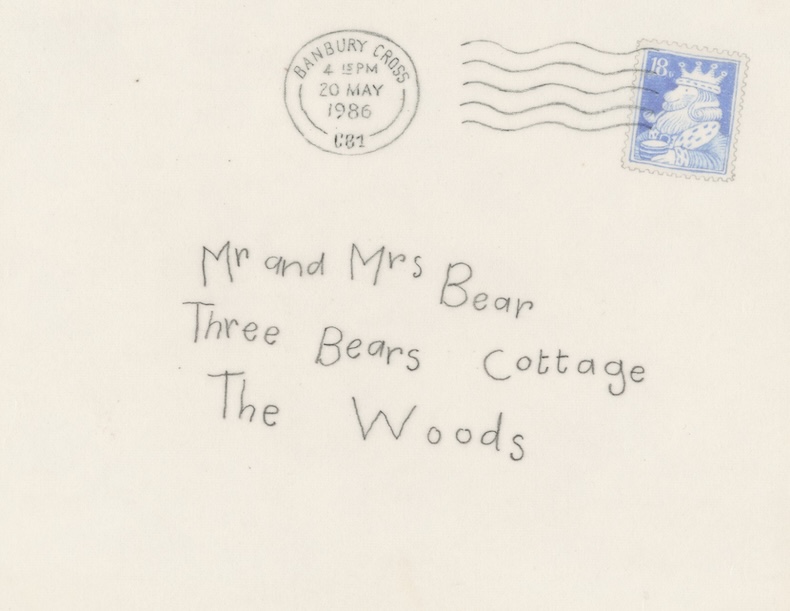 BANBURY CROSS
4 15 PM
20 MAY
1986
18
Mr and Mrs Bear
Three Bears Cottage
The Woods